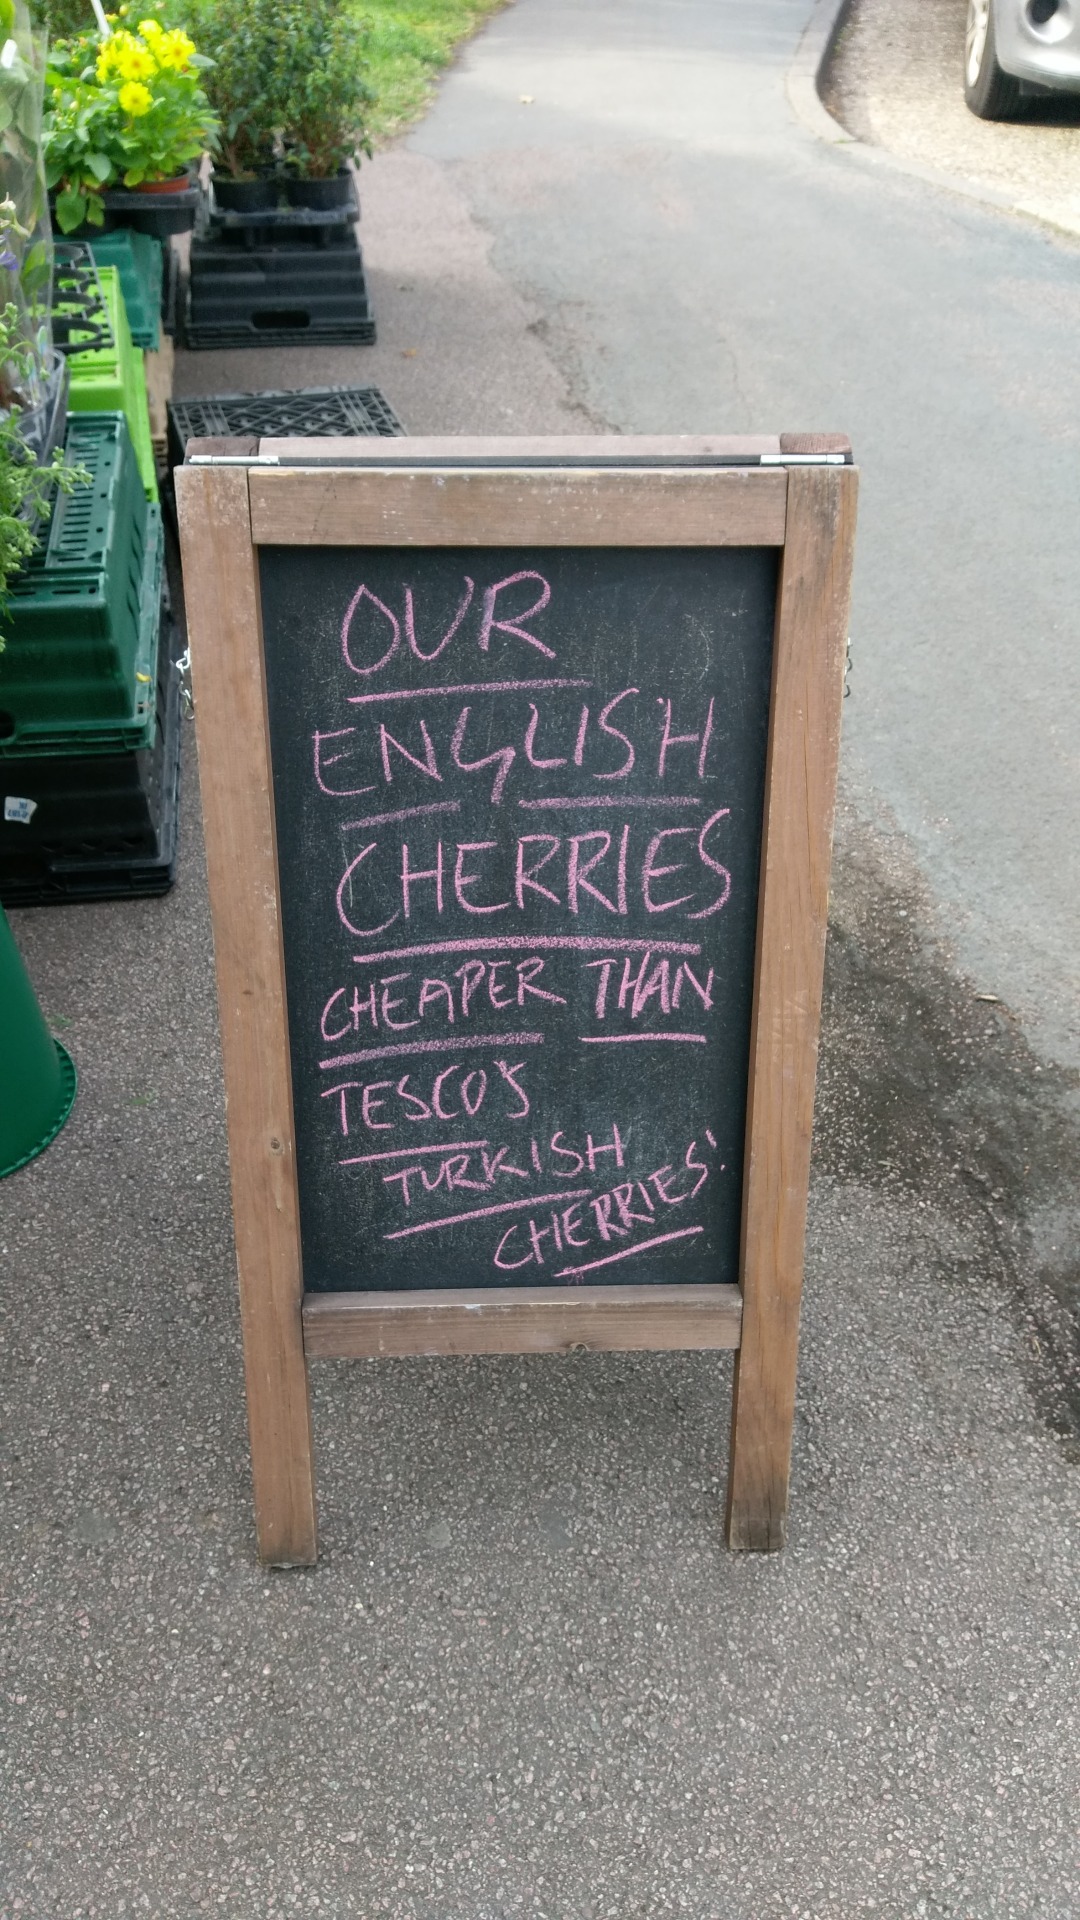 OUR
ENGLISH
CHERRIES
CHEAPER THAN
TESCO'S
TURKISH
CHERRIES!